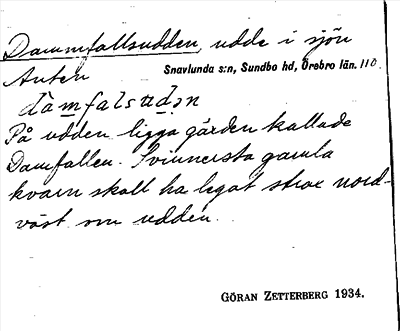 Dammfallsudden, udde i sjön
Anten
Snavlunda s:n, Sundbo hd, Örebro län. 110.
dàmfalsudən
På udden ligga gården kallade
Damfallen. Svinnersta gamla
kvarn skall ha legat strax nord-
väst om udden.
GÖRAN ZETTERBERG 1934.